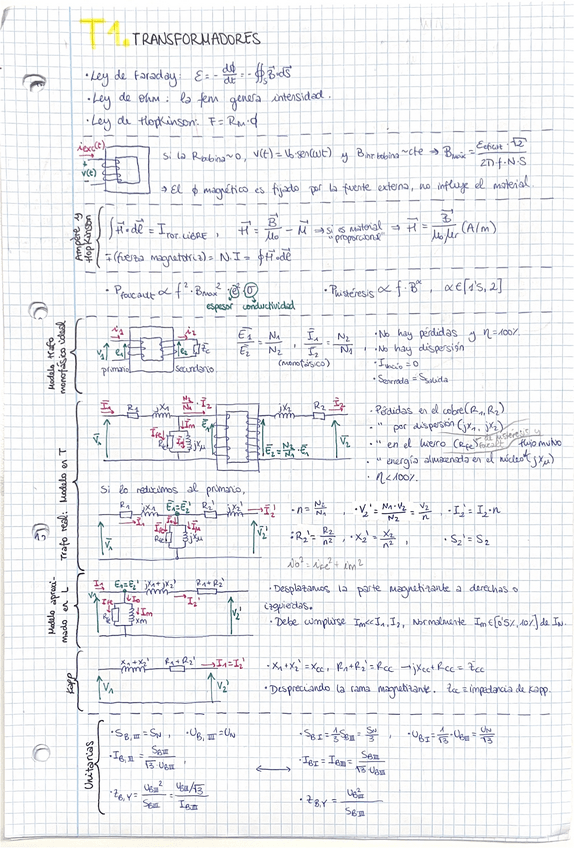 T1. TRANSFORMADORES
· Ley de Faraday: Ɛ = - dϕ/dt = - ∯s B⃗·dS⃗
· Ley de ohm: la fem genera intensidad.
· Ley de Hopkinson: F = Rm·ϕ
iexc(t)
v(t)
Si la Rbobina ~ 0, v(t) = V0·sen(ωt) y Bint bobina ~ cte → Bmax = Eeficaz·√2 / 2π·f·N·S
→ El ϕ magnético es fijado por la fuente externa, no influye el material.
Ampère y Hopkinson
∫H⃗·dl⃗ = ITOT, LIBRE, H⃗ = B⃗/μ0 - M⃗ → si es material "proporcional" → H⃗ = B⃗/μ0μr (A/m)
F (fuerza magnetomotriz) = N·I = ∮H⃗·dl⃗
· PFoucault ∝ f²·Bmax²·e·σ
espesor conductividad
· Phistéresis ∝ f·Bᵅ, α∈[1'5, 2]
Modelo trafo monofásico ideal
i1 i2
V1 e1 e2 Zc
primario secundario
E1/E2 = N1/N2, I1/I2 = N2/N1
(monofásico)
· No hay pérdidas y η=100%.
· No hay dispersión
· Ivacío = 0
· Sentrada = Ssalida
Trafo real: Modelo en T
I1 R1 jX1 N2/N1·I2 jX2 R2 I2
V1 IFe Im RFe jXμ E1 E2 = N2/N1·E1 V2
· Pérdidas en el cobre (R1, R2)
· " por dispersión (jX1, jX2)
· " en el hierro (RFe) de histéresis y Foucault flujo mutuo
· " energía almacenada en el núcleo (jXμ)
· η<100%
Si lo reducimos al primario,
R1 jX1 E1=E2' R2' jX2' I2'
I1 I0
V1 IFe Iμ RFe jXμ V2'
· n = N2/N1 · V2' = N1·V2/N2 = V2/n · I2' = I2·n
· R2' = R2/n², · X2' = X2/n² · S2' = S2
io² = ife² + im²
Modelo aproximado en L
I1 E1=E2' jX1+jX2' R1+R2'
V1 IFe I0 Im RFe Xm I2' V2'
· Desplazamos la parte magnetizante a derechas o
izquierdas.
· Debe cumplirse Im<<I1, I2, normalmente Im∈[0'5%, 10%] de IN.
Kapp
X1+X2' R1+R2' I1=I2'
V1 V2'
· X1+X2' = Xcc, R1+R2' = Rcc → jXcc+Rcc = Zcc
· Despreciando la rama magnetizante. Zcc = impedancia de Kapp.
Unitarias
· SB,III = SN, · UB,III = UN
· SBI = 1/3 SBIII = SN/3, · UBI = 1/√3·UBIII = UN/√3
· IB,III = SBIII / √3·UBIII
· IBI = IBIII = SBIII / √3 UBIII
· ZB,Y = UBIII² / SBIII = UBIII/√3 / IBIII
· ZB,Y = UBIII² / SBIII